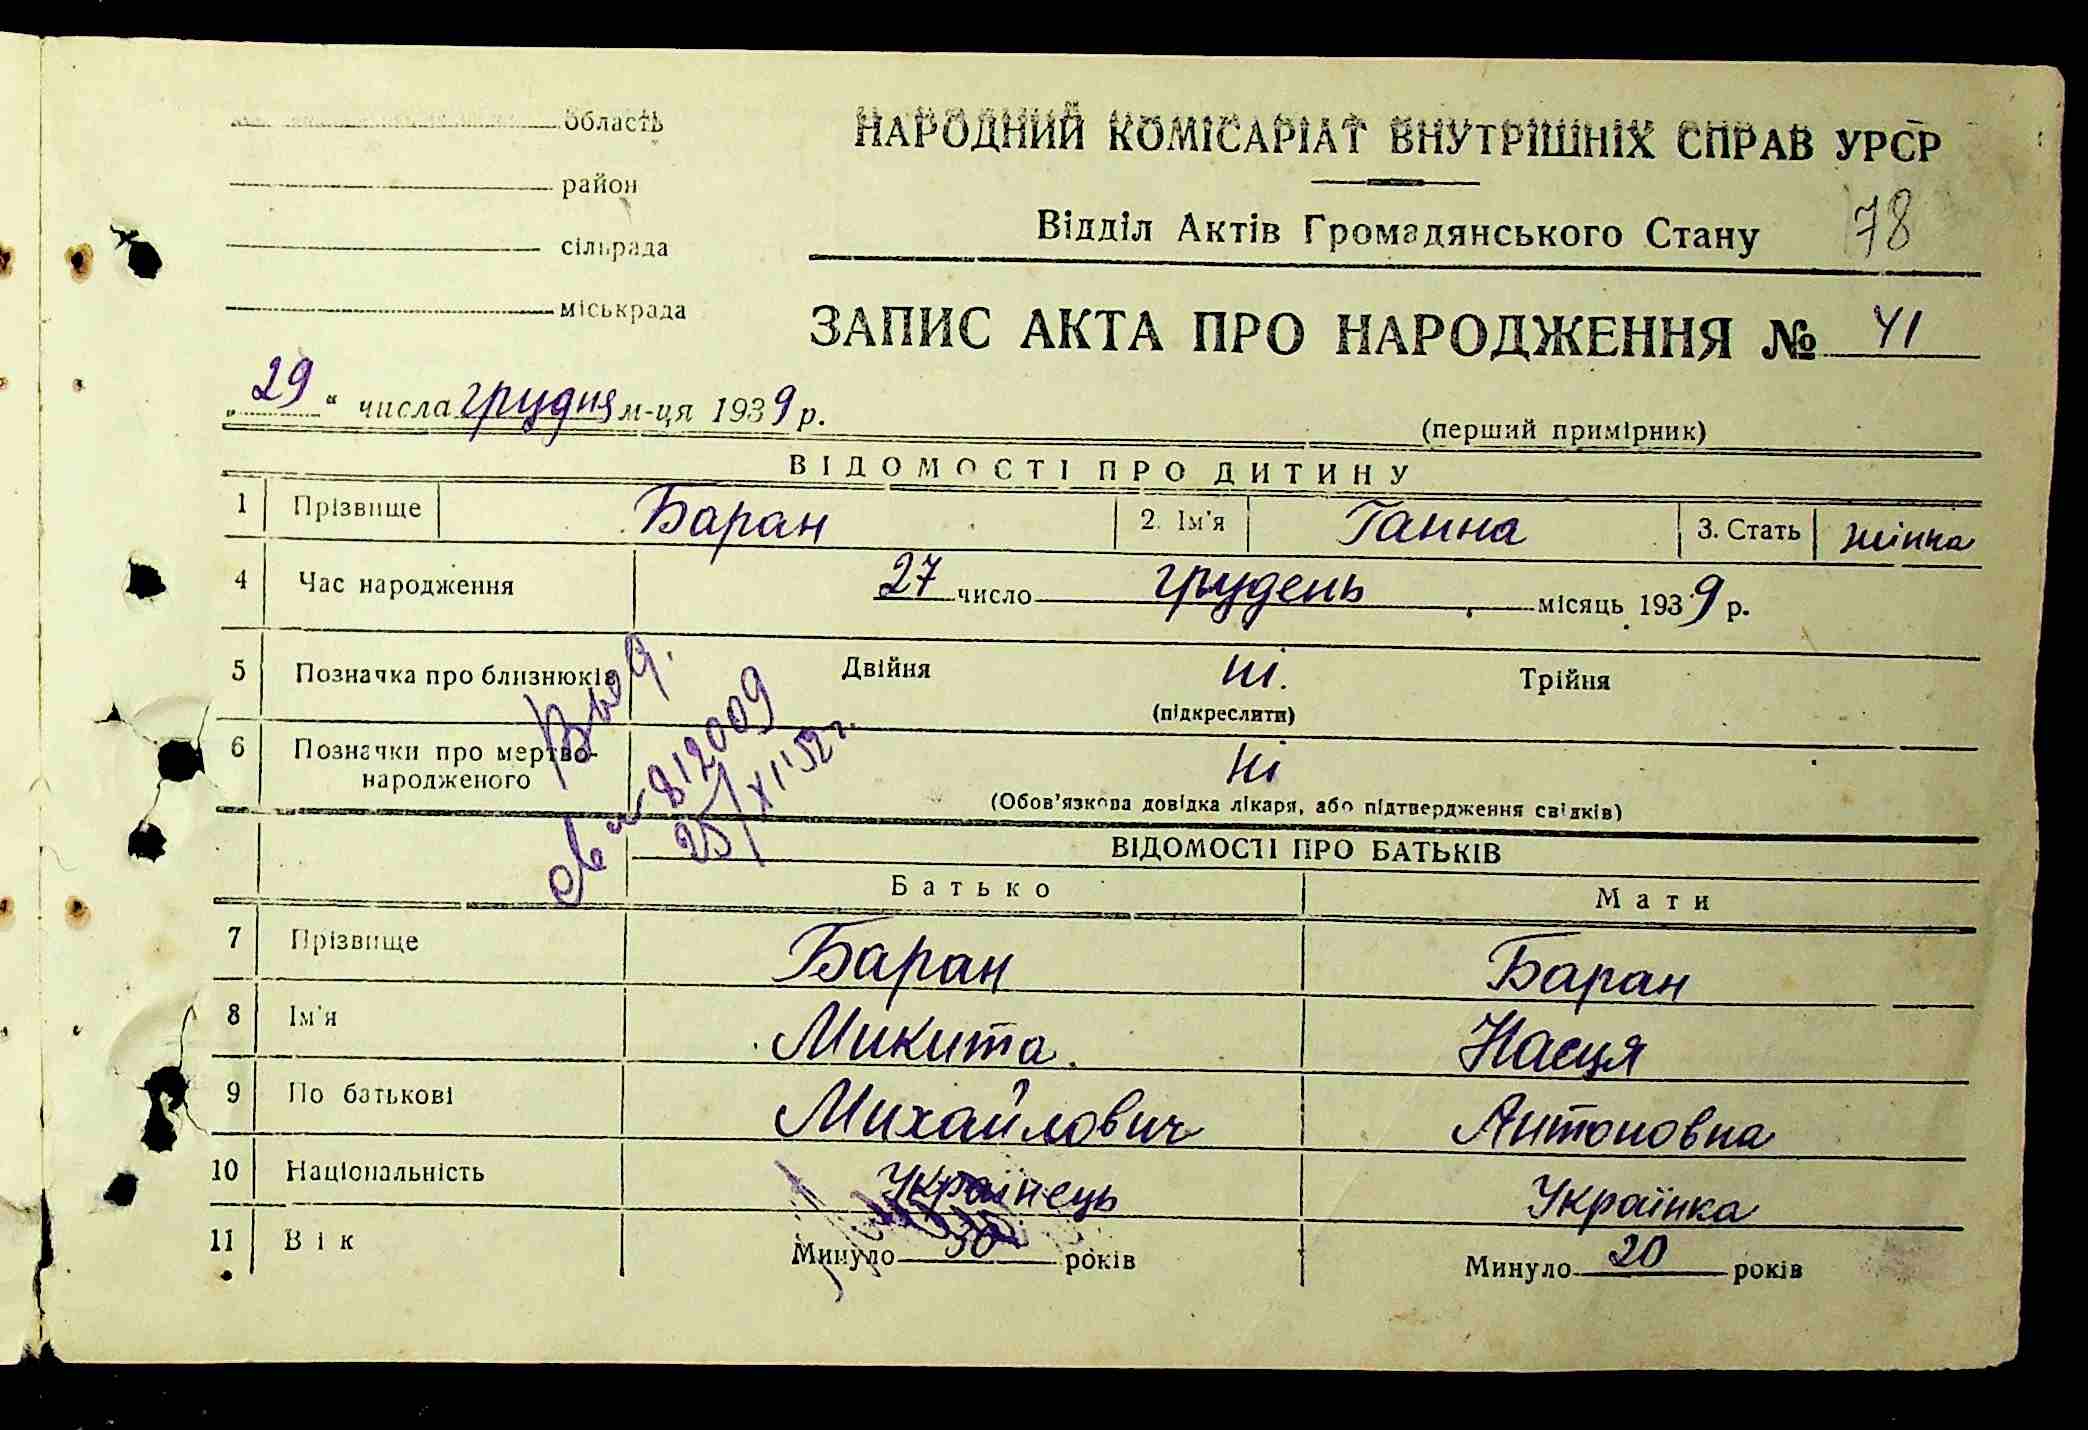 область
район
сільрада
міськрада
НАРОДНИЙ КОМІСАРІАТ ВНУТРІШНІХ СПРАВ УРСР
Відділ Актів Громадянського Стану
78
ЗАПИС АКТА ПРО НАРОДЖЕННЯ № 41
„29“ числа грудня м-ця 1939 р.
(перший примірник)
ВІДОМОСТІ ПРО ДИТИНУ
1 Прізвище Баран 2. Ім'я Ганна 3. Стать жінка
4 Час народження 27 число грудень місяць 1939 р.
5 Позначка про близнюків Двійня ні. Трійня
(підкреслити)
6 Позначки про мертво-
народженого ні
(Обов'язкова довідка лікаря, або підтвердження свідків)
Выд.
812009
25/XI 52 г.
ВІДОМОСТІ ПРО БАТЬКІВ
Батько Мати
7 Прізвище Баран Баран
8 Ім'я Микита Насця
9 По батькові Михайлович Антоновна
10 Національність Українець Українка
11 Вік Минуло 30 років Минуло 20 років